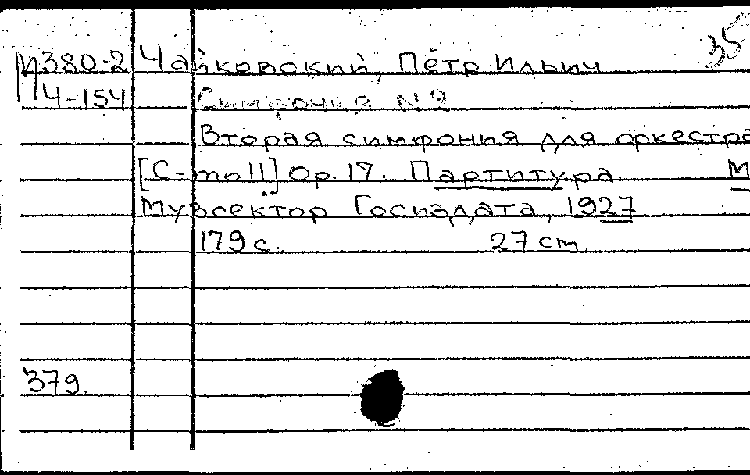 35
М380-2 Чайковский, Пётр Ильич
Ч-154 Симфония №2
Вторая симфония для оркестра
[C-moll] Op. 17. Партитура М
Музсектор Госиздата, 1927
179 с. 27 cm
379.